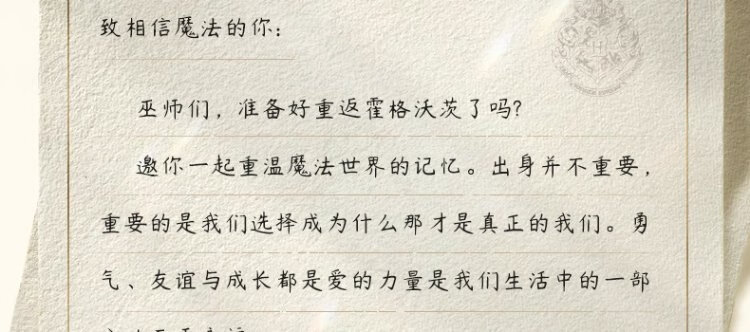 致相信魔法的你：
巫师们，准备好重返霍格沃茨了吗?
邀你一起重温魔法世界的记忆。出身并不重要，
重要的是我们选择成为什么那才是真正的我们。勇
气、友谊与成长都是爱的力量是我们生活中的一部